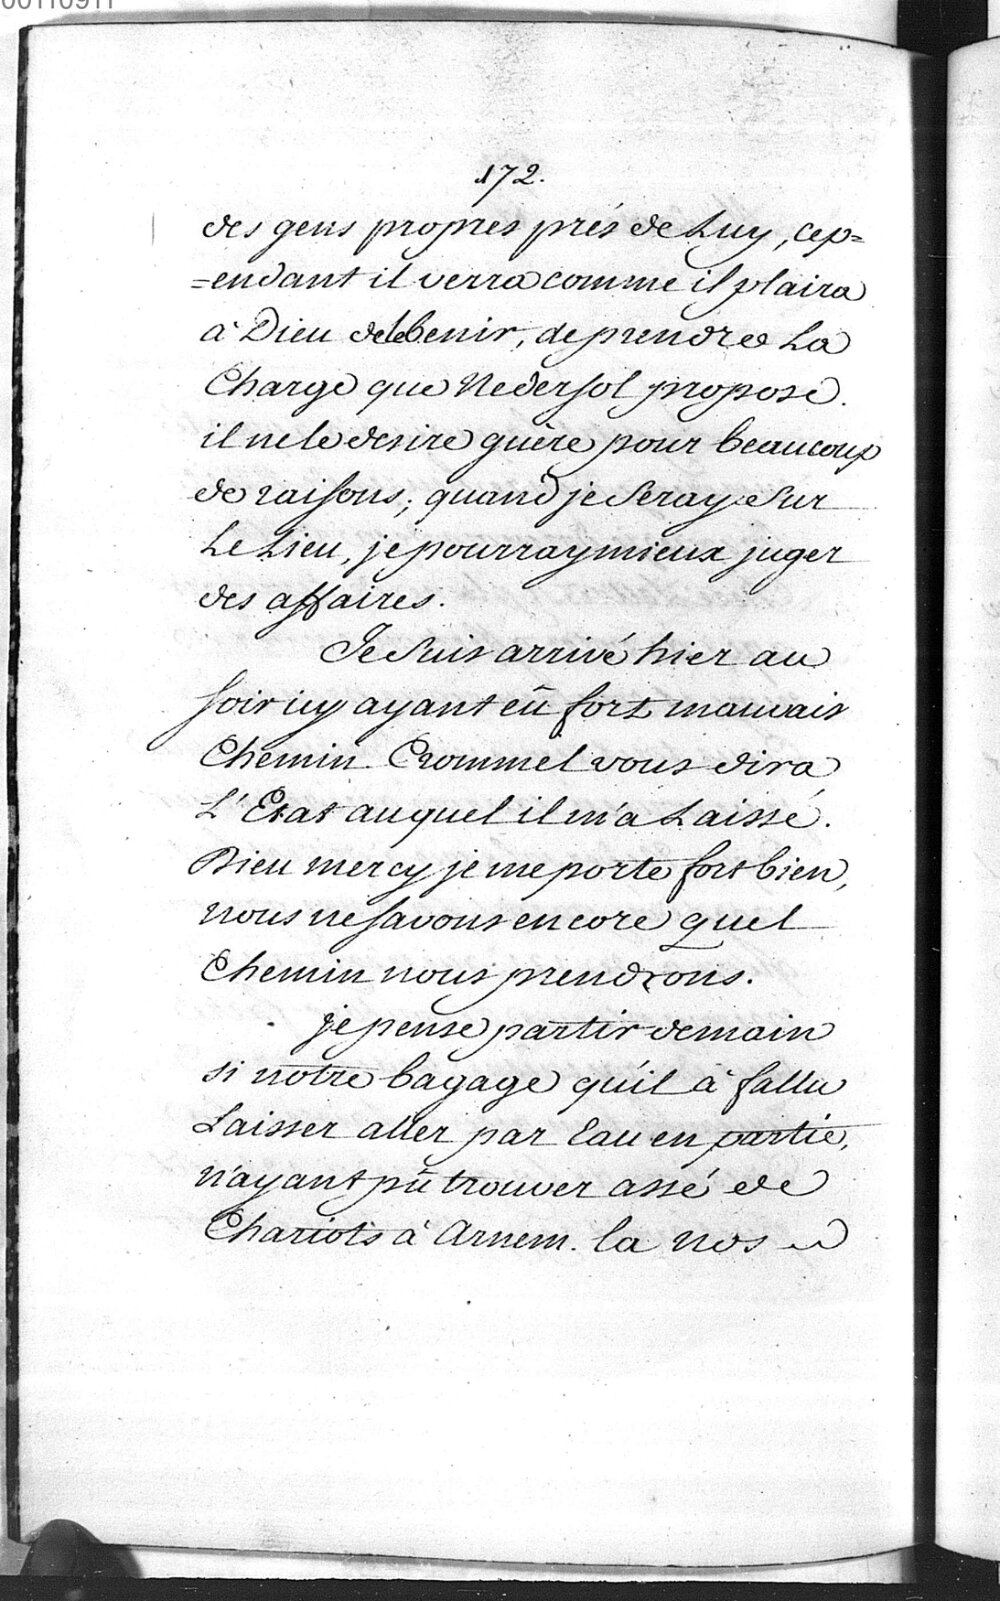 172.
des gens propres prés de Luy, cep=
=endant il verra comme il plaira
à Dieu de le benir, de prendre La
Charge que Nedersol propose.
il ne le desire guère pour beaucoup
de raisons; quand je Seray Sur
Le Lieu, je pourray mieux juger
des affaires.
Je Suis arrivé hier au
soir icy ayant eû fort mauvais
Chemin. Crommel vous dira
L'Etat auquel il m'a Laissé.
Dieu mercy je me porte fort bien,
nous ne savons encore quel
Chemin nous prendrons.
je pense partir demain
si notre bagage qu'il à fallu
Laisser aller par l'au en partie,
n'ayant pû trouver assé de
Chariots à Arnem. la nos